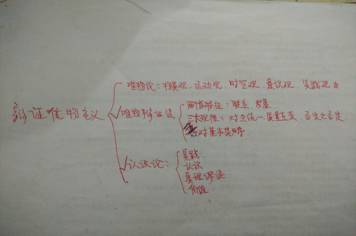 唯物论：物质观、运动观、时空观、意识观、实践观
辩证唯物主义
唯物辩证法
两个特征：联系、发展
三大规律：对立统一、质量互变、否定之否定
五对基本范畴
认识论：
实践
认识
真理
价值